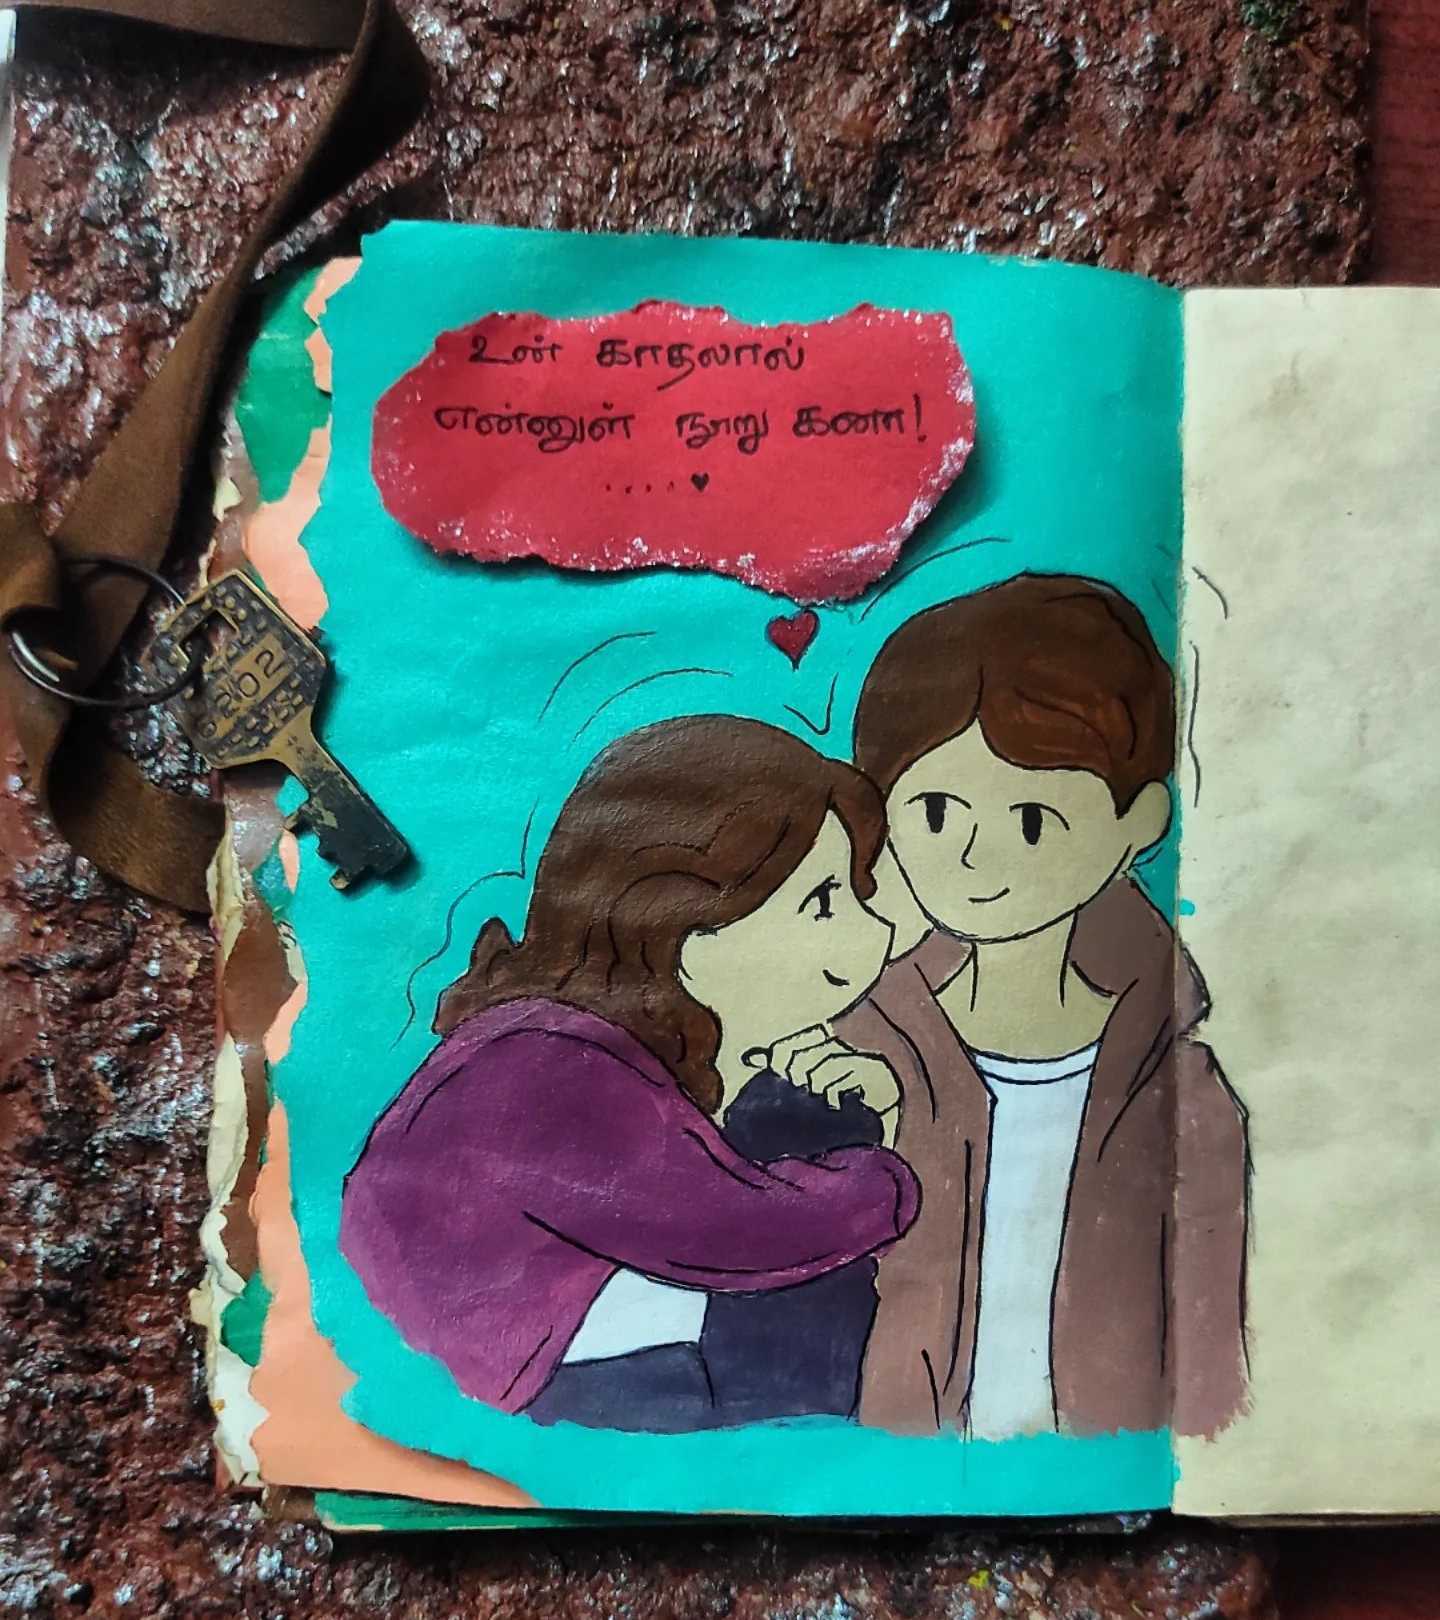 உன் காதலால்
என்னுள் நூறு கணா!
....♥
6202